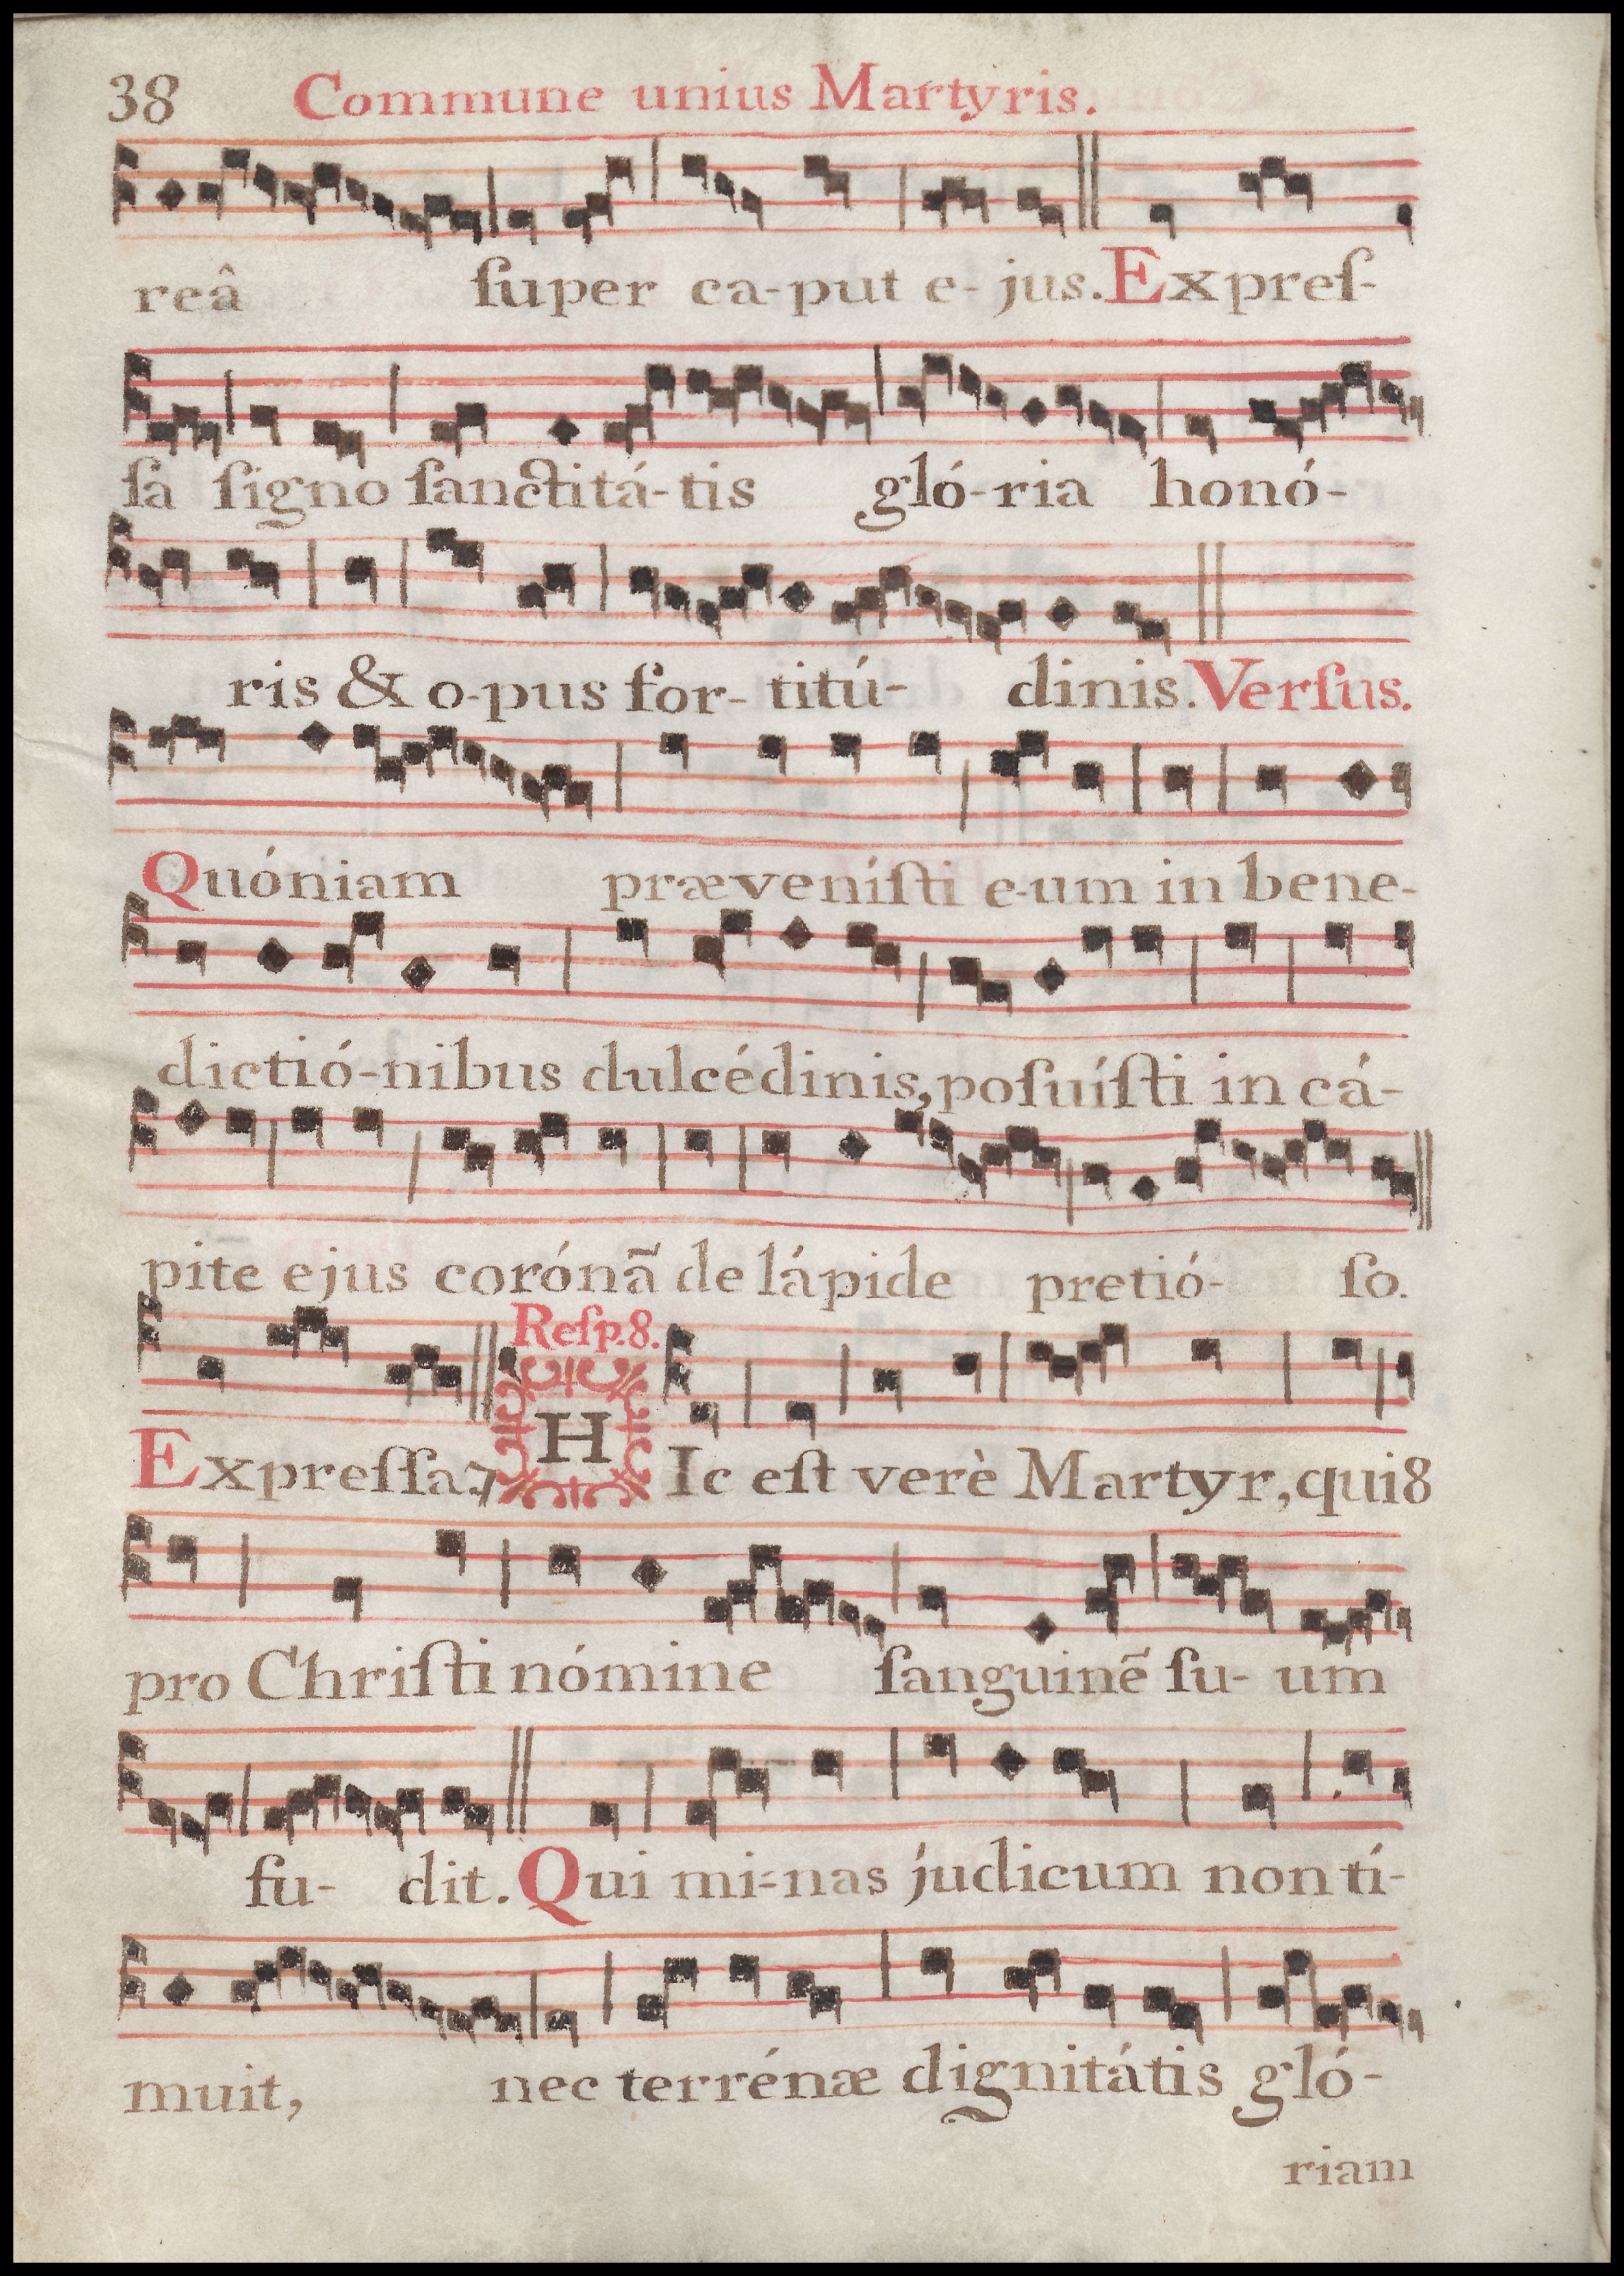 38 Commune unius Martyris.
reâ ſuper ca-put e-jus. Expreſ-
ſa ſigno ſanctitá-tis gló-ria honó-
ris & o-pus for-titú-dinis. Verſus.
Quóniam præveníſti e-um in bene-
dictió-nibus dulcédinis, poſuíſti in cá-
pite ejus corónã de lápide pretió-ſo.
Reſp. 8.
Expreſſa. 7 HIc eſt verè Martyr, qui 8
pro Chriſti nómine ſanguinẽ ſu-um
fu-dit. Qui mi-nas júdicum non tí-
muit, nec terrénæ dignitátis gló-
riam